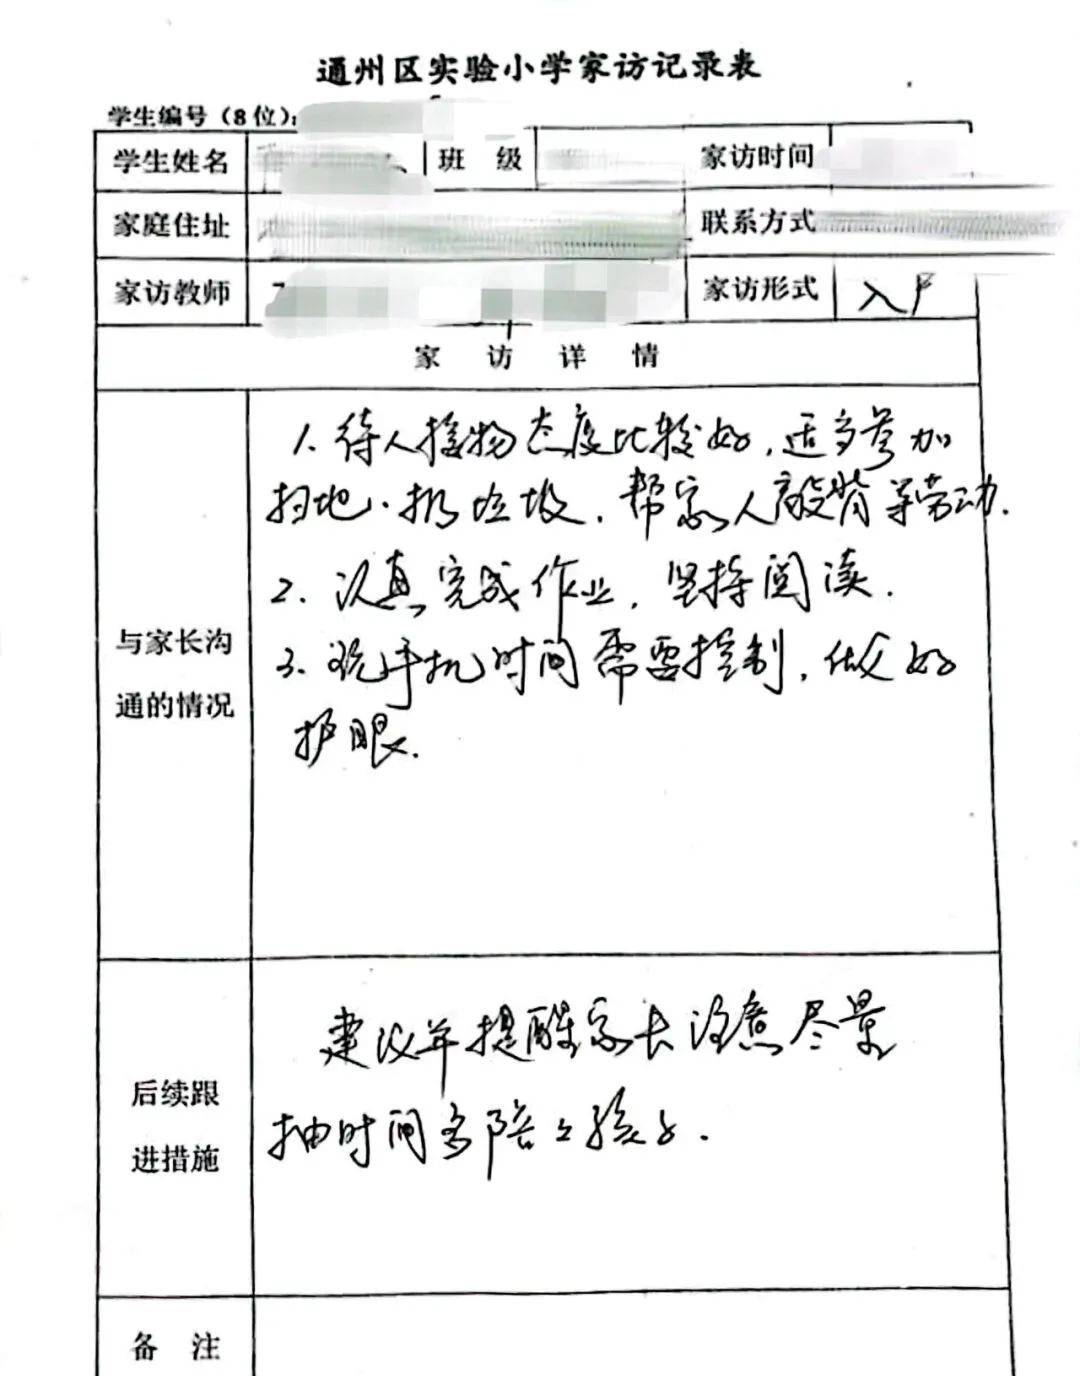 通州区实验小学家访记录表
学生编号（8位）：
学生姓名 班 级 家访时间
家庭住址 联系方式
家访教师 家访形式 入户
家 访 详 情
与家长沟通的情况
1. 待人接物态度比较好，适当参加
扫地、扔垃圾、帮家人敲背等劳动.
2. 认真完成作业，坚持阅读.
3. 玩手机时间需要控制，做好
护眼.
后续跟进措施
建议并提醒家长注意尽量
抽时间多陪陪孩子.
备 注